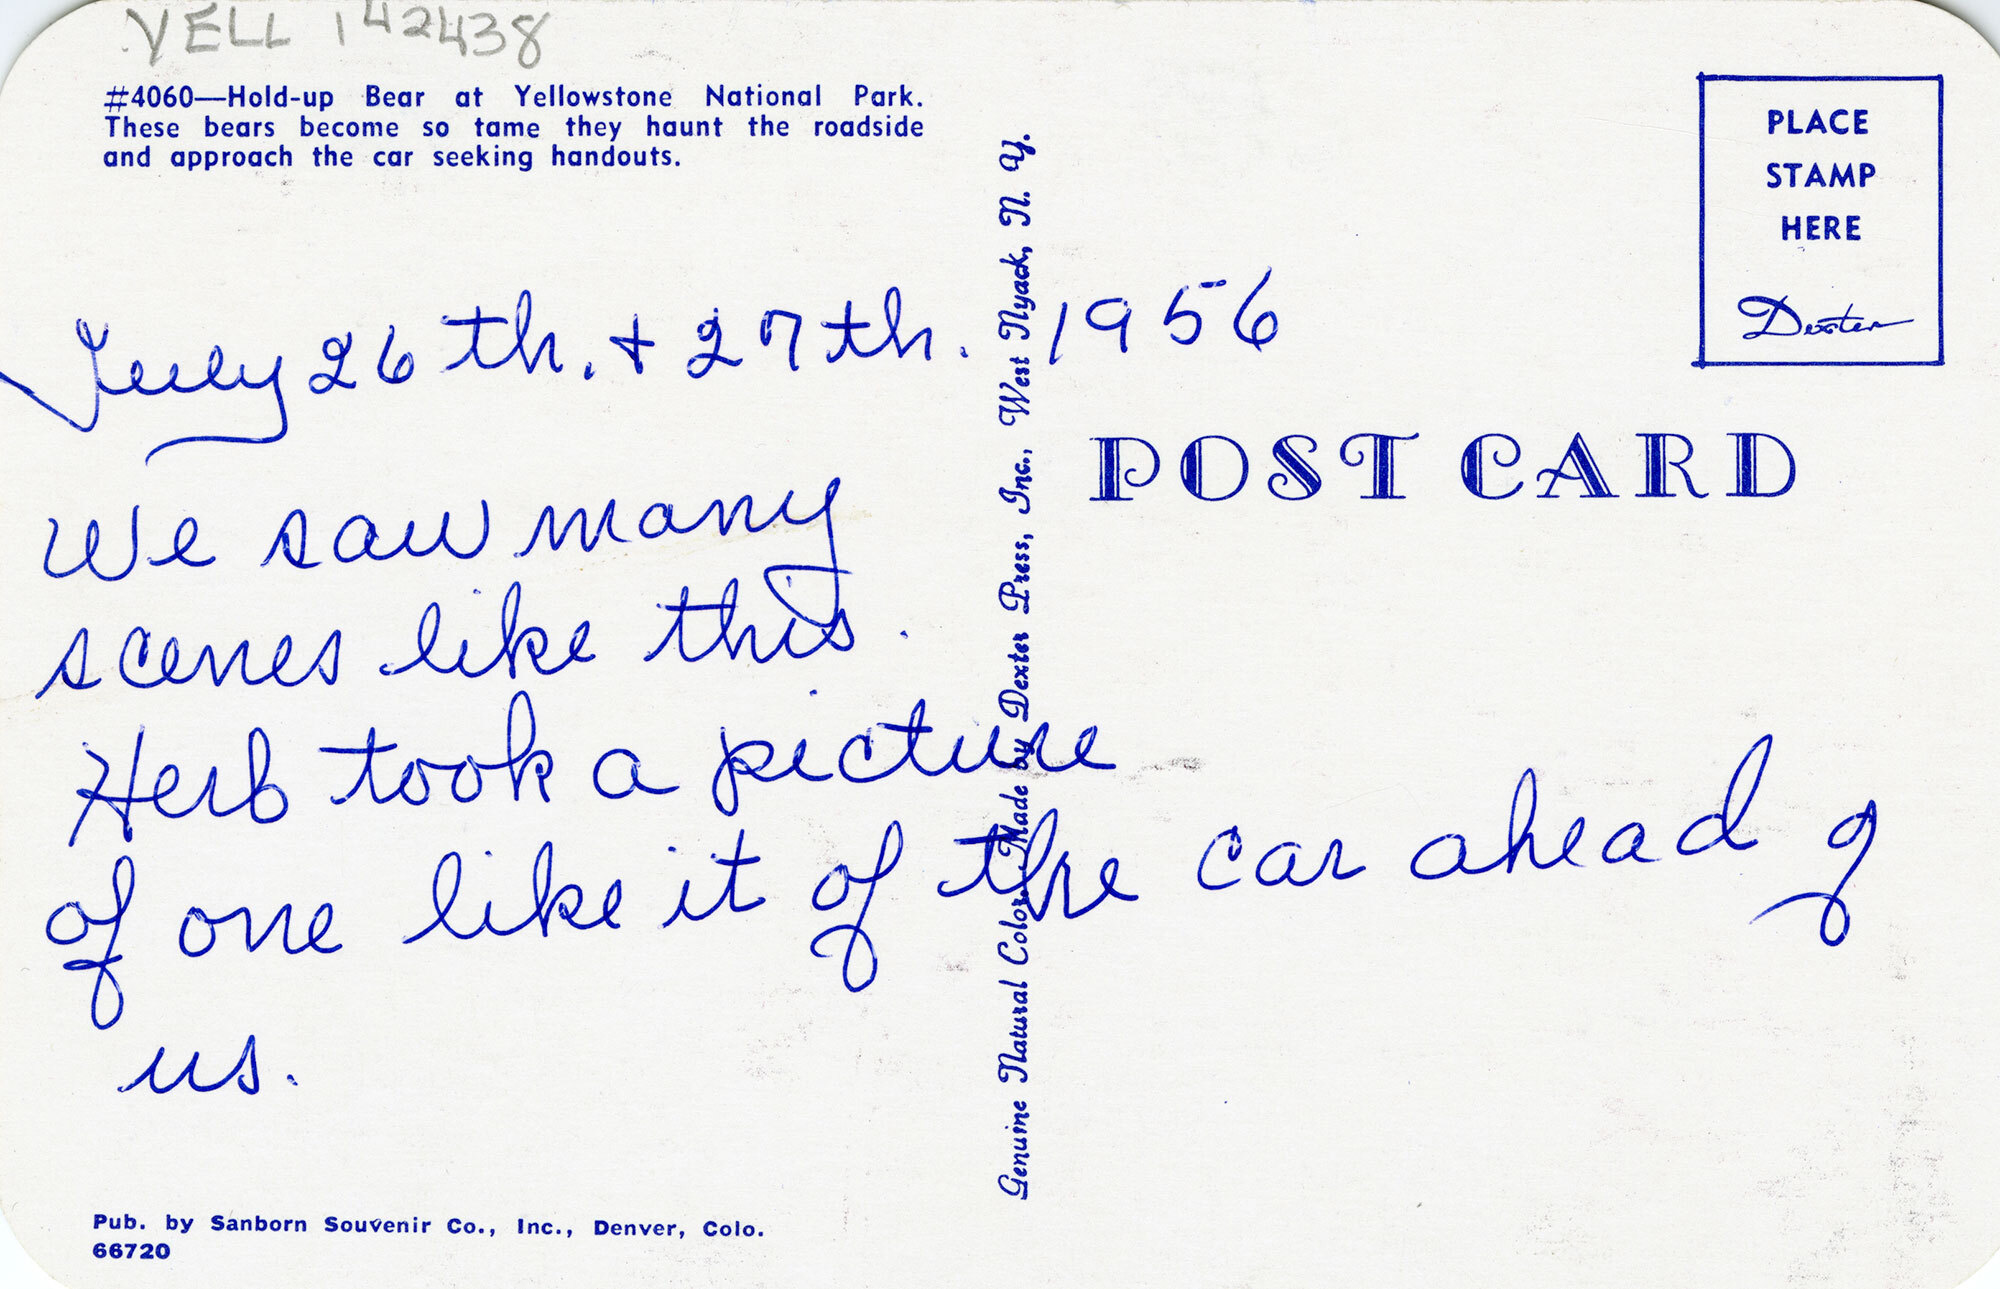 YELL 142438
#4060—Hold-up Bear at Yellowstone National Park.
These bears become so tame they haunt the roadside
and approach the car seeking handouts.
PLACE
STAMP
HERE
Dexter
July 26th. + 27th. 1956
POST CARD
We saw many
scenes like this.
Herb took a picture
of one like it of the car ahead of
us.
Genuine Natural Color Made by Dexter Press, Inc., West Nyack, N. Y.
Pub. by Sanborn Souvenir Co., Inc., Denver, Colo.
66720